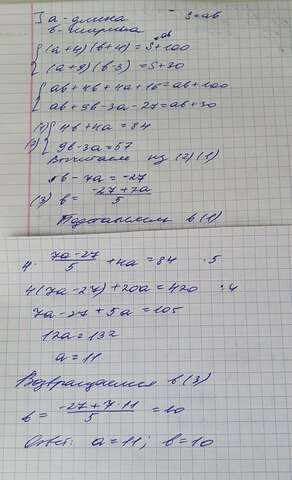 ] a - длина S = ab
b - ширина
{ (a+4)(b+4) = S+100
(a+9)(b-3) = S+30
{ ab+4b+4a+16=ab+100
ab+9b-3a-27=ab+30
(1) { 4b+4a=84
(2) 9b-3a=57
Вычитаем из (2) (1)
5b-7a=-27
(3) b= -27+7a / 5
Подставляем в (1)
4 · 7a-27 / 5 +4a=84 ·5
4(7a-27)+20a=420 :4
7a-27+5a=105
12a=132
a=11
Возвращаемся в (3)
b= -27+7·11 / 5 =10
Ответ: a=11; b=10